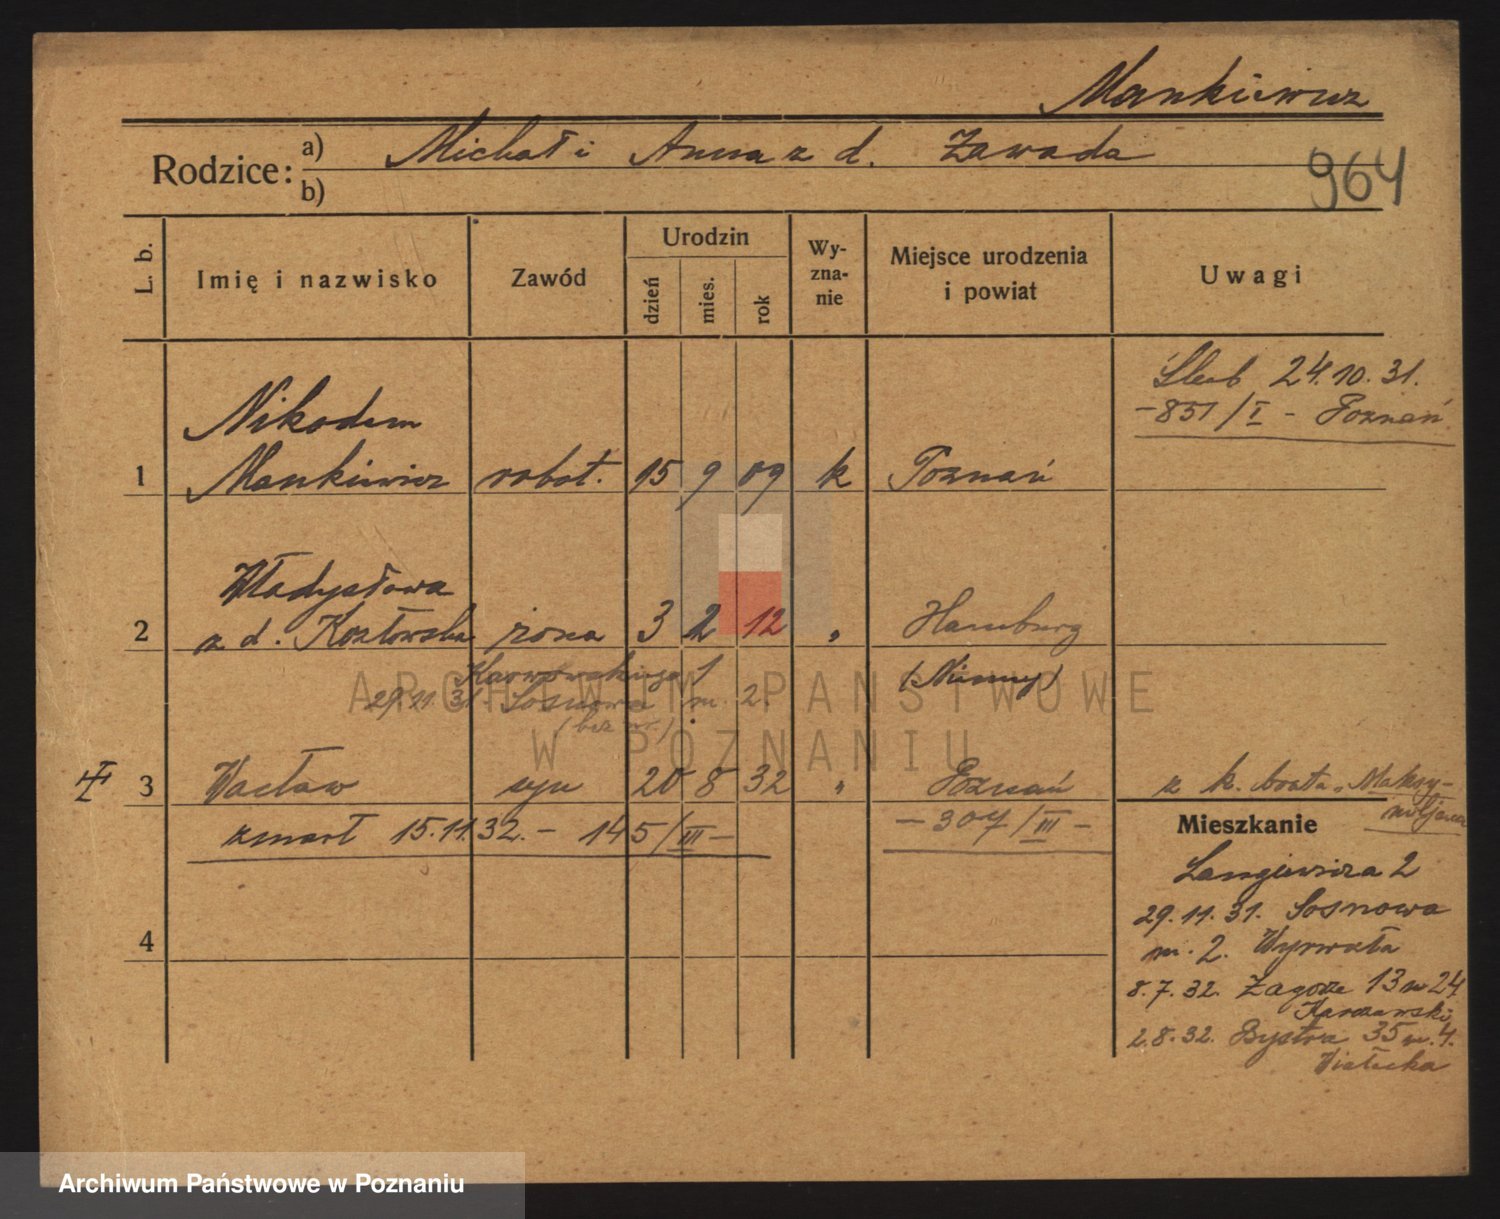 Mankiewicz
Rodzice: a) Michał i Anna z d. Zawada
b)
964
L. b.
Imię i nazwisko
Zawód
Urodzin
dzień
mies.
rok
Wy-
zna-
nie
Miejsce urodzenia
i powiat
Uwagi
Ślub 24.10.31.
-851/I - Poznań
Nikodem
1 Mankiewicz robot. 15 9 09 k Poznań
Władysława
2 z d. Kozłowska żona 3 2 12 „ Hamburg
(Niemcy)
29.11.31. Sosnowa m. 2.
(bez nr.)
3 Wacław syn 20 8 32 „ Poznań
z k. brata „Maksy-
miljana
zmarł 15.11.32. - 145/III -
- 307/III -
Mieszkanie
Langiewicza 2
29.11.31. Sosnowa
m. 2.
8.7.32. Zagórze 13 m 24
2.8.32. Bystra 35 m. 4.
4
ARCHIWUM PAŃSTWOWE
W POZNANIU
Archiwum Państwowe w Poznaniu